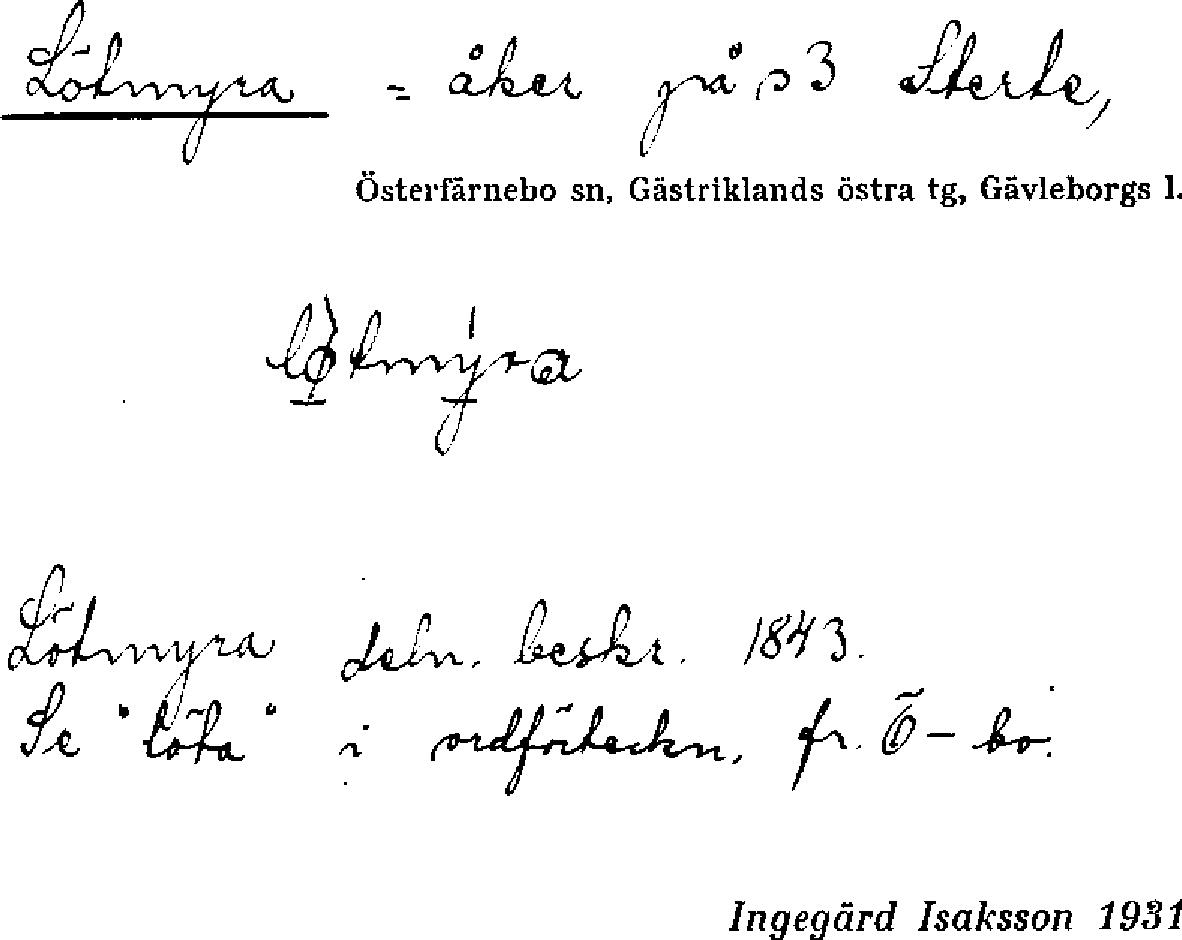 Lötmyra = åker på s 3 Sterte,
Österfärnebo sn, Gästriklands östra tg, Gävleborgs l.
Lötmyra deln. beskr. 1843.
Se "löta" i ordförteckn. fr. Ö-bo.
Ingegärd Isaksson 1931